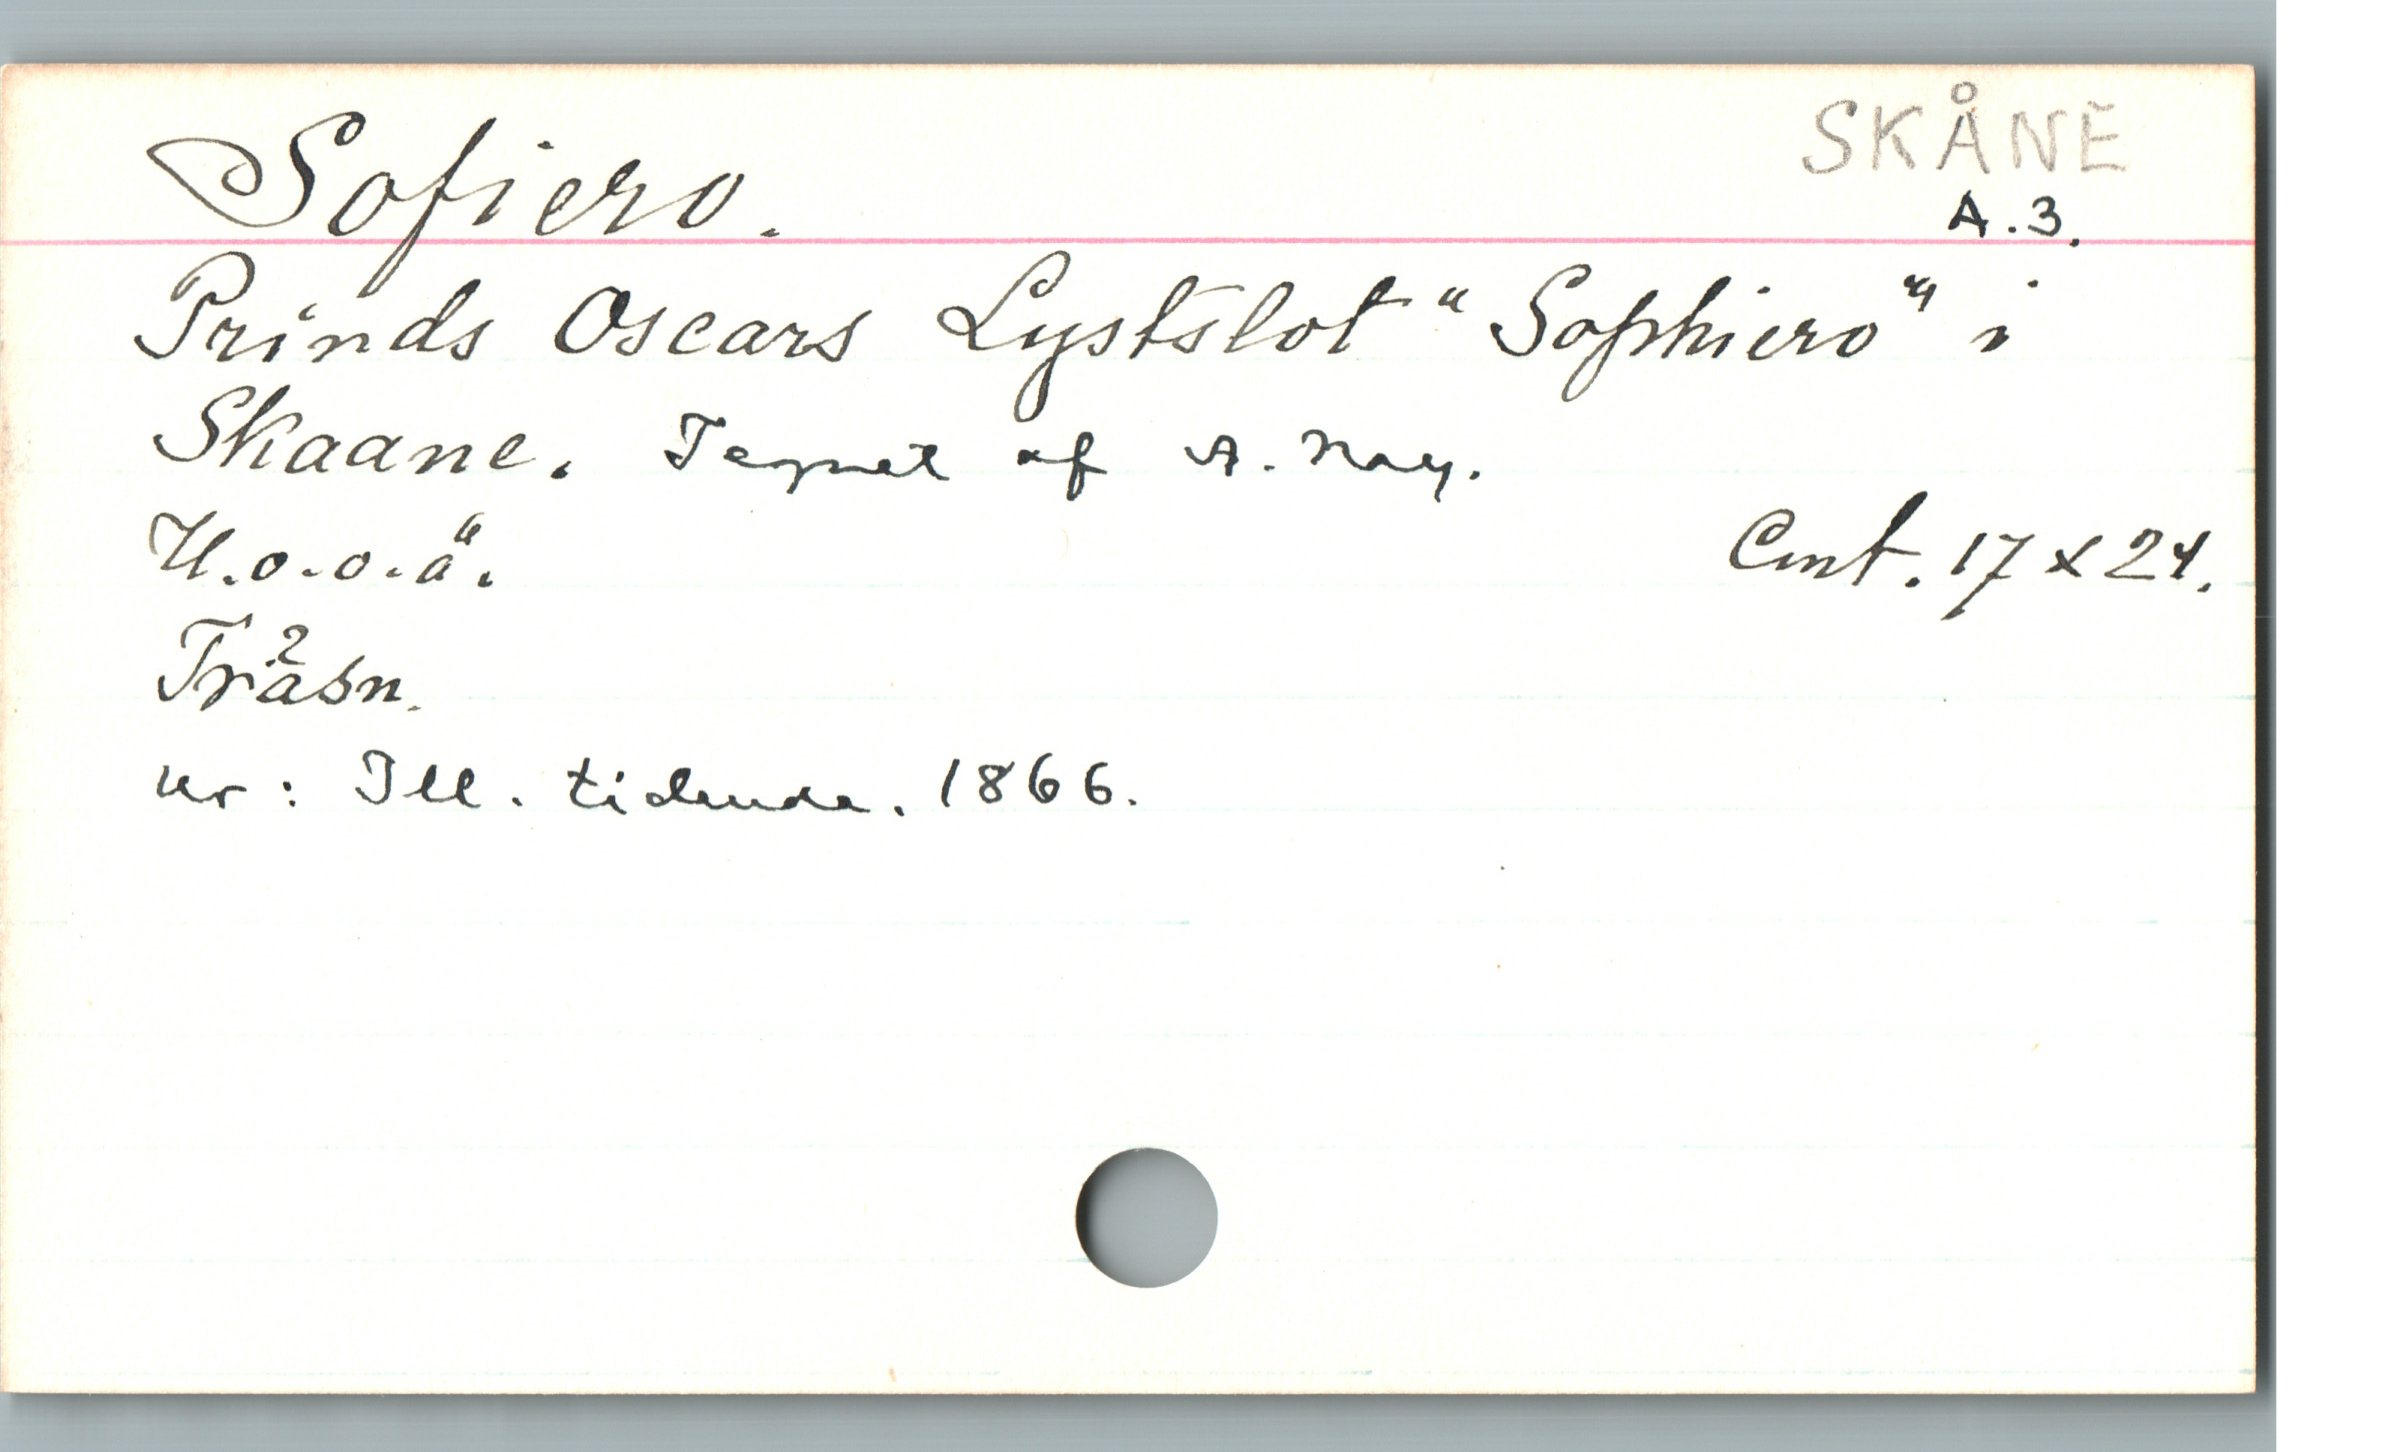 SKÅNE
Sofiero.
A.3.
Prinds Oscars Lystslot "Sophiero" i
Skaane. Tegnet af A. Nay.
H.o.o.ä.
Cmt. 17 x 24.
Träsn.
ur: Ill. tidende. 1866.